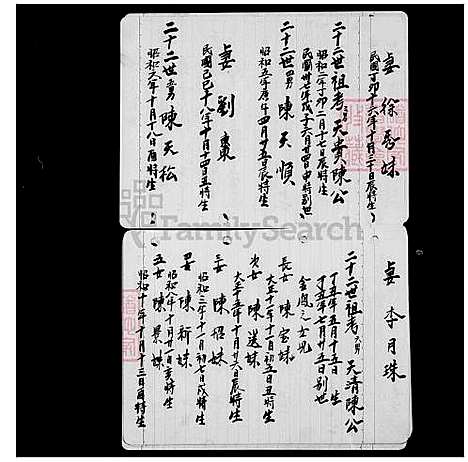 妻 徐秀妹
民國丁卯十六年十月二十日辰時生
二十二世祖考 天貴陳公
昭和二年丁卯二月十七日辰時生
民國卅七年戊子六月廿四申時別世
二十二世 男 陳天順
昭和五年庚午四月廿五日辰時生
妻 劉棗
民國己巳十八年十月十四日丑時生
二十二世 男 陳天松
昭和八年十月十八日酉時生
妻 李月珠
二十二世祖考 天清陳公
丁丑年五月十五日 生
丁丑年七月廿五日別世
金鳳之女兒
長女 陳宝妹
大正十一年十一月初五日丑時生
次女 陳送妹
大正十五年十月廿六日辰時生
三女 陳招妹
昭和三年十一月初七日戌時生
四女 陳新妹
昭和八年十月廿一日亥時生
五女 陳景妹
昭和十年十月十三日酉時生
FamilySearch